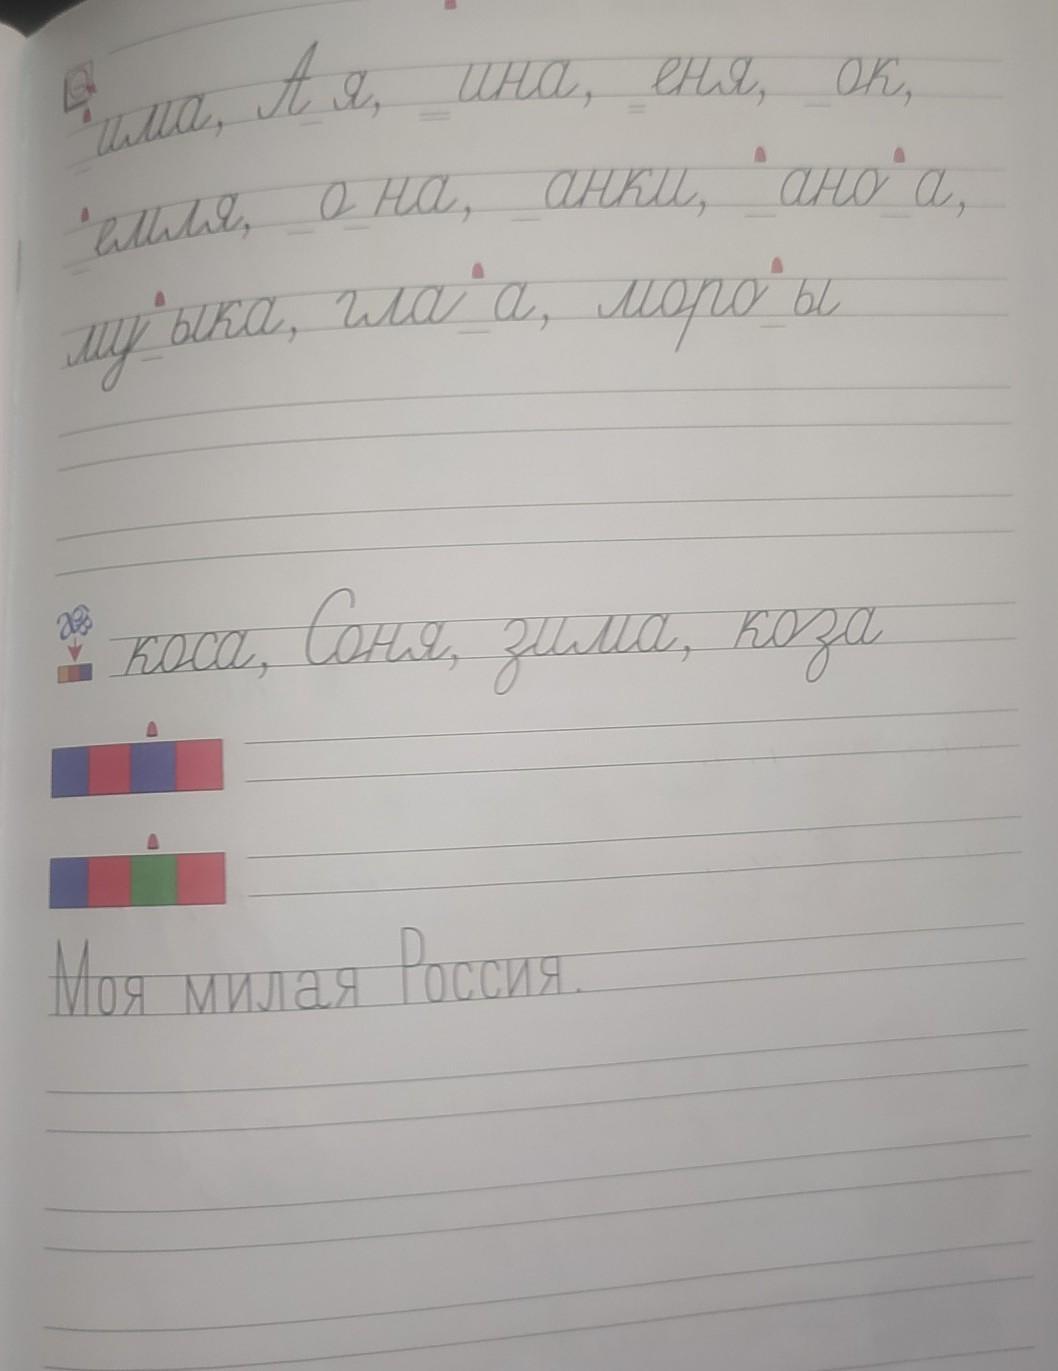 _има, А_я, _ина, _еня, _ок,
_емля, _о_на, _анки, _ано_а,
му_ыка, гла_а, моро_ы
коса, Соня, зима, коза
Моя милая Россия.